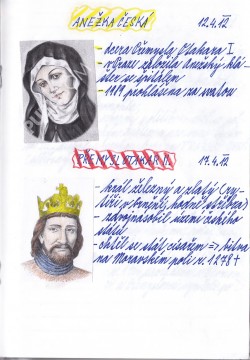 ANEŽKA ČESKÁ 12.4.12
- dcera Přemysla Otakara I.
- v Praze založila Anežský klá-
šter se špitálem
- 1989 prohlášena za svatou
PŘEMYSL OTAKAR II. 17.4.12
- král železný a zlatý (ry-
tíři v brnění, hodně stříbra)
- zdvojnásobil území českého
státu
- chtěl se stát císařem => bitva
na Moravském poli r. 1278 †